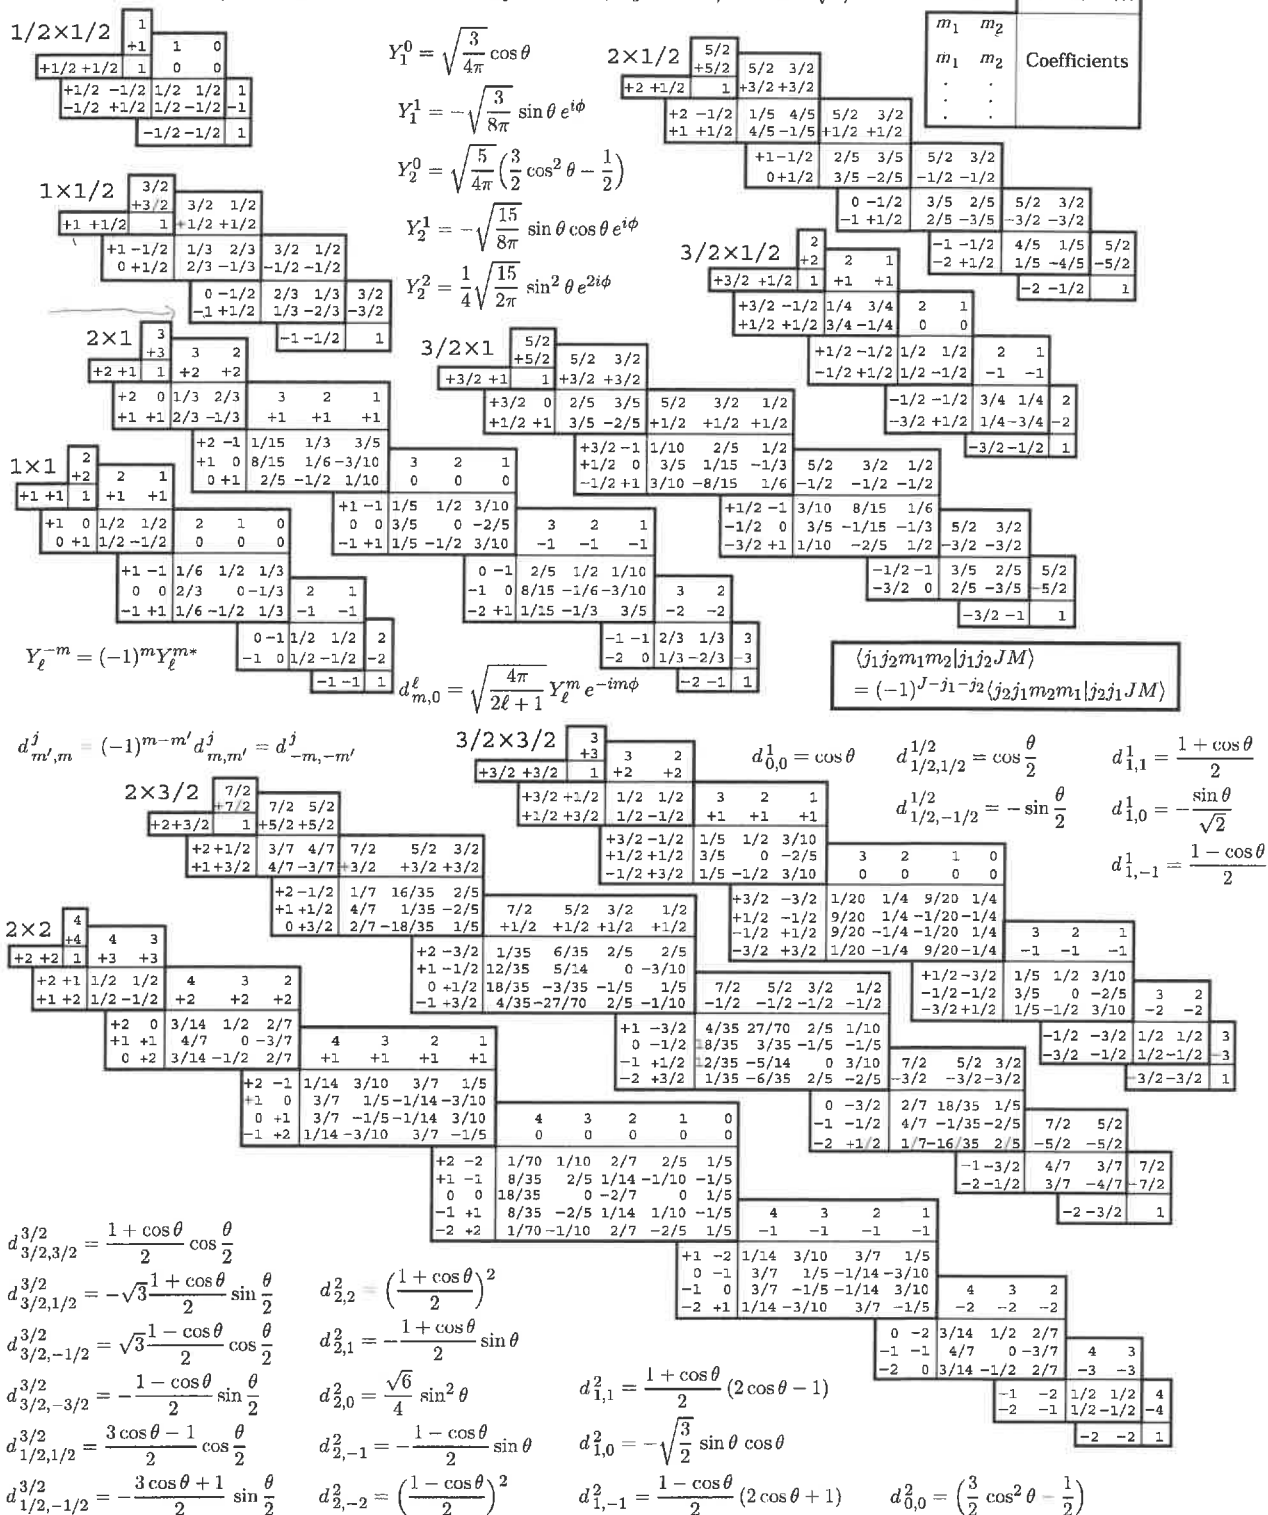 1/2×1/2
1
+1 1 0
+1/2 +1/2 1 0 0
+1/2 -1/2 1/2 1/2 1
-1/2 +1/2 1/2 -1/2 -1
-1/2 -1/2 1
Y_1^0 = \sqrt{\frac{3}{4\pi}} \cos θ
Y_1^1 = -\sqrt{\frac{3}{8\pi}} \sin θ e^{iϕ}
Y_2^0 = \sqrt{\frac{5}{4\pi}} (\frac{3}{2} \cos^2 θ - \frac{1}{2})
Y_2^1 = -\sqrt{\frac{15}{8\pi}} \sin θ \cos θ e^{iϕ}
Y_2^2 = \frac{1}{4} \sqrt{\frac{15}{2\pi}} \sin^2 θ e^{2iϕ}
2×1/2
5/2
+5/2 5/2 3/2
+2 +1/2 1 +3/2 +3/2
+2 -1/2 1/5 4/5 5/2 3/2
+1 +1/2 4/5 -1/5 +1/2 +1/2
+1 -1/2 2/5 3/5 5/2 3/2
0 +1/2 3/5 -2/5 -1/2 -1/2
0 -1/2 3/5 2/5 5/2 3/2
-1 +1/2 2/5 -3/5 -3/2 -3/2
-1 -1/2 4/5 1/5 5/2
-2 +1/2 1/5 -4/5 -5/2
-2 -1/2 1
m_1 m_2
m_1 m_2 Coefficients
. .
. .
. .
1×1/2
3/2
+3/2 3/2 1/2
+1 +1/2 1 +1/2 +1/2
+1 -1/2 1/3 2/3 3/2 1/2
0 +1/2 2/3 -1/3 -1/2 -1/2
0 -1/2 2/3 1/3 3/2
-1 +1/2 1/3 -2/3 -3/2
-1 -1/2 1
3/2×1/2
2
+2 2 1
+3/2 +1/2 1 +1 +1
+3/2 -1/2 1/4 3/4 2 1
+1/2 +1/2 3/4 -1/4 0 0
+1/2 -1/2 1/2 1/2 2 1
-1/2 +1/2 1/2 -1/2 -1 -1
-1/2 -1/2 3/4 1/4 2
-3/2 +1/2 1/4 -3/4 -2
-3/2 -1/2 1
2×1
3
+3 3 2
+2 +1 1 +2 +2
+2 0 1/3 2/3 3 2 1
+1 +1 2/3 -1/3 +1 +1 +1
+2 -1 1/15 1/3 3/5
+1 0 8/15 1/6 -3/10 3 2 1
0 +1 2/5 -1/2 1/10 0 0 0
+1 -1 1/5 1/2 3/10
0 0 3/5 0 -2/5 3 2 1
-1 +1 1/5 -1/2 3/10 -1 -1 -1
0 -1 2/5 1/2 1/10
-1 0 8/15 -1/6 -3/10 3 2
-2 +1 1/15 -1/3 3/5 -2 -2
-1 -1 2/3 1/3 3
-2 0 1/3 -2/3 -3
-2 -1 1
3/2×1
5/2
+5/2 5/2 3/2
+3/2 +1 1 +3/2 +3/2
+3/2 0 2/5 3/5 5/2 3/2 1/2
+1/2 +1 3/5 -2/5 +1/2 +1/2 +1/2
+3/2 -1 1/10 2/5 1/2
+1/2 0 3/5 1/15 -1/3 5/2 3/2 1/2
-1/2 +1 3/10 -8/15 1/6 -1/2 -1/2 -1/2
+1/2 -1 3/10 8/15 1/6
-1/2 0 3/5 -1/15 -1/3 5/2 3/2
-3/2 +1 1/10 -2/5 1/2 -3/2 -3/2
-1/2 -1 3/5 2/5 5/2
-3/2 0 2/5 -3/5 -5/2
-3/2 -1 1
1×1
2
+2 2 1
+1 +1 1 +1 +1
+1 0 1/2 1/2 2 1 0
0 +1 1/2 -1/2 0 0 0
+1 -1 1/6 1/2 1/3
0 0 2/3 0 -1/3 2 1
-1 +1 1/6 -1/2 1/3 -1 -1
0 -1 1/2 1/2 2
-1 0 1/2 -1/2 -2
-1 -1 1
Y_ℓ^{-m} = (-1)^m Y_ℓ^{m*}
d_{m,0}^ℓ = \sqrt{\frac{4\pi}{2ℓ+1}} Y_ℓ^m e^{-imϕ}
⟨j_1 j_2 m_1 m_2|j_1 j_2 J M⟩
= (-1)^{J-j_1-j_2}⟨j_2 j_1 m_2 m_1|j_2 j_1 J M⟩
d_{m',m}^j = (-1)^{m-m'} d_{m,m'}^j = d_{-m,-m'}^j
3/2×3/2
3
+3 3 2
+3/2 +3/2 1 +2 +2
+3/2 +1/2 1/2 1/2 3 2 1
+1/2 +3/2 1/2 -1/2 +1 +1 +1
+3/2 -1/2 1/5 1/2 3/10
+1/2 +1/2 3/5 0 -2/5 3 2 1 0
-1/2 +3/2 1/5 -1/2 3/10 0 0 0 0
+3/2 -3/2 1/20 1/4 9/20 1/4
+1/2 -1/2 9/20 1/4 -1/20 -1/4
-1/2 +1/2 9/20 -1/4 -1/20 1/4 3 2 1
-3/2 +3/2 1/20 -1/4 9/20 -1/4 -1 -1 -1
+1/2 -3/2 1/5 1/2 3/10
-1/2 -1/2 3/5 0 -2/5 3 2
-3/2 +1/2 1/5 -1/2 3/10 -2 -2
-1/2 -3/2 1/2 1/2 3
-3/2 -1/2 1/2 -1/2 -3
-3/2 -3/2 1
d_{0,0}^1 = \cos θ d_{1/2,1/2}^{1/2} = \cos \frac{θ}{2} d_{1,1}^1 = \frac{1+\cos θ}{2}
d_{1/2,-1/2}^{1/2} = -\sin \frac{θ}{2} d_{1,0}^1 = -\frac{\sin θ}{\sqrt{2}}
d_{1,-1}^1 = \frac{1-\cos θ}{2}
2×3/2
7/2
+7/2 7/2 5/2
+2 +3/2 1 +5/2 +5/2
+2 +1/2 3/7 4/7 7/2 5/2 3/2
+1 +3/2 4/7 -3/7 +3/2 +3/2 +3/2
+2 -1/2 1/7 16/35 2/5
+1 +1/2 4/7 1/35 -2/5 7/2 5/2 3/2 1/2
0 +3/2 2/7 -18/35 1/5 +1/2 +1/2 +1/2 +1/2
+2 -3/2 1/35 6/35 2/5 2/5
+1 -1/2 12/35 5/14 0 -3/10
0 +1/2 18/35 -3/35 -1/5 1/5 7/2 5/2 3/2 1/2
-1 +3/2 4/35 -27/70 2/5 -1/10 -1/2 -1/2 -1/2 -1/2
+1 -3/2 4/35 27/70 2/5 1/10
0 -1/2 18/35 3/35 -1/5 -1/5
-1 +1/2 12/35 -5/14 0 3/10 7/2 5/2 3/2
-2 +3/2 1/35 -6/35 2/5 -2/5 -3/2 -3/2 -3/2
0 -3/2 2/7 18/35 1/5
-1 -1/2 4/7 -1/35 -2/5 7/2 5/2
-2 +1/2 1/7 -16/35 2/5 -5/2 -5/2
-1 -3/2 4/7 3/7 7/2
-2 -1/2 3/7 -4/7 -7/2
-2 -3/2 1
2×2
4
+4 4 3
+2 +2 1 +3 +3
+2 +1 1/2 1/2 4 3 2
+1 +2 1/2 -1/2 +2 +2 +2
+2 0 3/14 1/2 2/7
+1 +1 4/7 0 -3/7 4 3 2 1
0 +2 3/14 -1/2 2/7 +1 +1 +1 +1
+2 -1 1/14 3/10 3/7 1/5
+1 0 3/7 1/5 -1/14 -3/10
0 +1 3/7 -1/5 -1/14 3/10 4 3 2 1 0
-1 +2 1/14 -3/10 3/7 -1/5 0 0 0 0 0
+2 -2 1/70 1/10 2/7 2/5 1/5
+1 -1 8/35 2/5 1/14 -1/10 -1/5
0 0 18/35 0 -2/7 0 1/5
-1 +1 8/35 -2/5 1/14 1/10 -1/5 4 3 2 1
-2 +2 1/70 -1/10 2/7 -2/5 1/5 -1 -1 -1 -1
+1 -2 1/14 3/10 3/7 1/5
0 -1 3/7 1/5 -1/14 -3/10
-1 0 3/7 -1/5 -1/14 3/10 4 3 2
-2 +1 1/14 -3/10 3/7 -1/5 -2 -2 -2
0 -2 3/14 1/2 2/7
-1 -1 4/7 0 -3/7 4 3
-2 0 3/14 -1/2 2/7 -3 -3
-1 -2 1/2 1/2 4
-2 -1 1/2 -1/2 -4
-2 -2 1
d_{3/2,3/2}^{3/2} = \frac{1+\cos θ}{2} \cos \frac{θ}{2}
d_{3/2,1/2}^{3/2} = -\sqrt{3} \frac{1+\cos θ}{2} \sin \frac{θ}{2} d_{2,2}^2 = (\frac{1+\cos θ}{2})^2
d_{3/2,-1/2}^{3/2} = \sqrt{3} \frac{1-\cos θ}{2} \cos \frac{θ}{2} d_{2,1}^2 = -\frac{1+\cos θ}{2} \sin θ
d_{3/2,-3/2}^{3/2} = -\frac{1-\cos θ}{2} \sin \frac{θ}{2} d_{2,0}^2 = \frac{\sqrt{6}}{4} \sin^2 θ d_{1,1}^2 = \frac{1+\cos θ}{2} (2\cos θ - 1)
d_{1/2,1/2}^{3/2} = \frac{3\cos θ-1}{2} \cos \frac{θ}{2} d_{2,-1}^2 = -\frac{1-\cos θ}{2} \sin θ d_{1,0}^2 = -\sqrt{\frac{3}{2}} \sin θ \cos θ
d_{1/2,-1/2}^{3/2} = -\frac{3\cos θ+1}{2} \sin \frac{θ}{2} d_{2,-2}^2 = (\frac{1-\cos θ}{2})^2 d_{1,-1}^2 = \frac{1-\cos θ}{2} (2\cos θ + 1) d_{0,0}^2 = (\frac{3}{2} \cos^2 θ - \frac{1}{2})